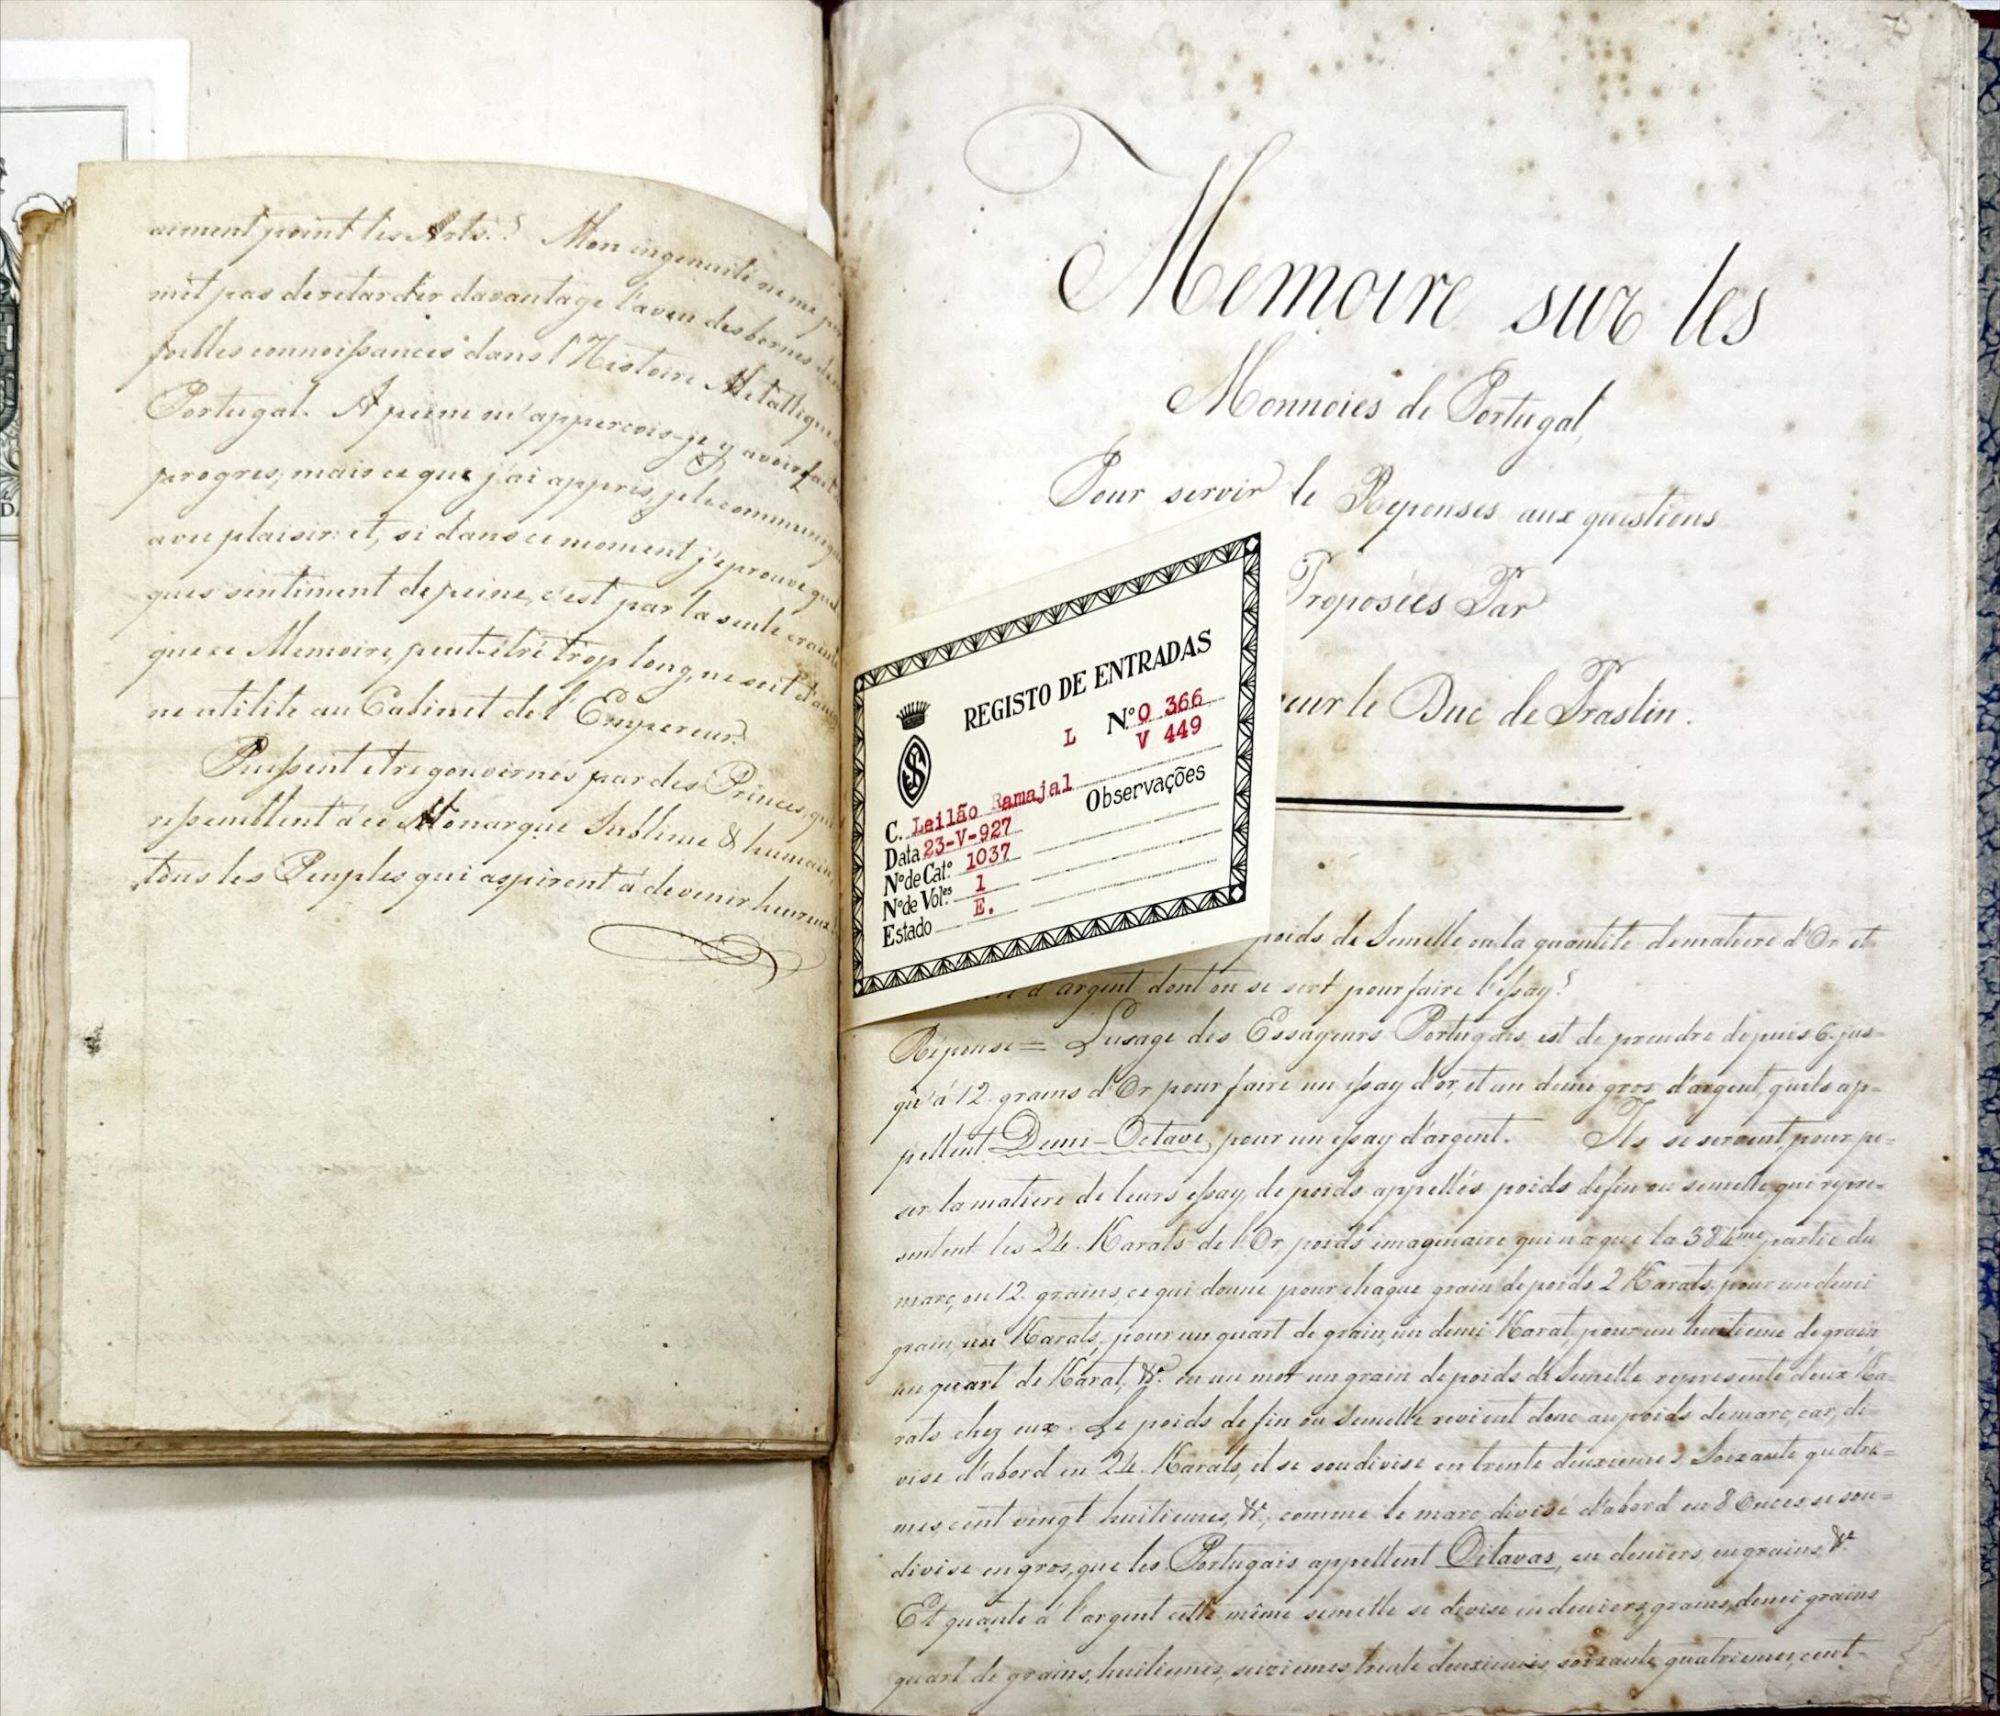 aiment point les Arts.? Mon ingenuité ne me per
met pas de retarder davantage l'aveu des bornes de
foibles connoissances dans l'Histoire Metallique d
Portugal. A peine m'appercois-je y avoir fait
progres, mais ce que j'ai appris, je le communiqu
avec plaisir: et, si dans ce moment j'éprouve quel
ques sentiment de peine, c'est par la seule crainte
que ce Memoire, peut-étré trop long, ne soit d'au
ne utilité au Cabinet de l'Empereur.
Puissent etre gouvernés par des Princes, qui
ressemblent à ce Monarque Sublime & humain,
tous les Peuples qui aspirent à devenir heureux.
Memoire sur les
Monnoies de Portugal,
Pour servir le Reponses aux questions
Proposées Par
eur le Duc de Praslin.
REGISTO DE ENTRADAS
L N.º O 366
V 449
C. Leilão Ramajal
Observações
Data 23-V-927
Nº de Cat.º 1037
Nº de Vol.es 1
Estado E.
poids de Semelle ou la quantité de matiere d'Or et
d'argent dont on se sert pour faire l'essay?
Réponse = L'usage des Essayeurs Portugais est de prendre depuis 6. jus=
qu'à 12. grains d'Or pour faire un essay d'or, et un demi gros d'argent, qu'ils ap=
pellent Demi-Octave, pour un essay d'argent. Ils se servent, pour pe=
ser la matiere de leurs essay, de poids appellés poids de fin ou semelle qui repre=
sentent les 24. Karats de l'Or, poids imaginaire qui n'a que la 384me partie du
marc, ou 12. grains, ce qui donne pour chaque grain de poids 2 Karats, pour un demi
grain, un Karats, pour un quart de grain, un demi Karat, pour un huitieme de grain,
un quart de Karat, &c. en un mot un grain de poids de Semelle represente deux Ka=
rats chez eux. Le poids de fin ou Semelle revient donc au poids de marc, car, di=
visé d'abord en 24. Karats, il se soudivise en trente deuxiemes Soixante quatrie=
mes, cent vingt huitiemes, &c., comme le marc, divisé d'abord en 8 Onces, se sou=
divise en gros, que les Portugais appellent Oitavas, en deniers, en grains, &c
Et quante à l'argent cette même semelle se divise en deniers, grains, demi grains
quart de grains, huitiemes, seiziemes, trente deuxiemes, soixante quatriemes, cent-